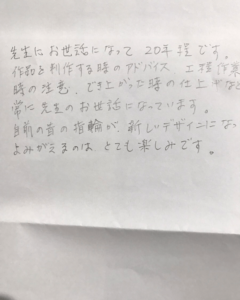 先生にお世話になって 20年程です。
作品を制作する時のアドバイス 工程作業
時の注意、でき上がった時の仕上げなど
常に先生のお世話になっています。
の昔の指輪が、新しいデザインになっ
よみがえるのは とても楽しみです。